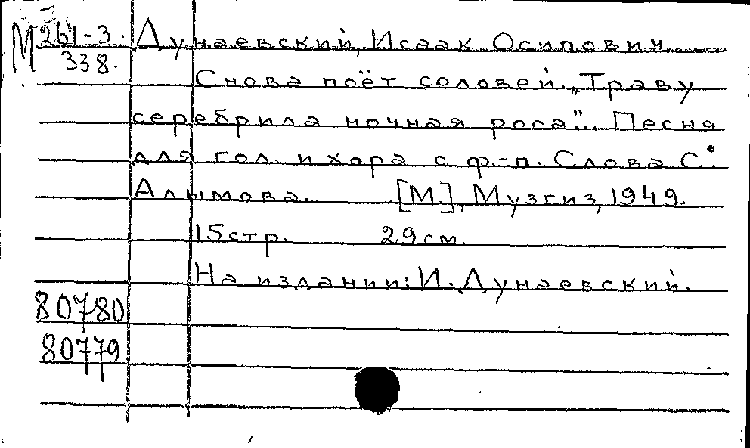 М 261-3. Дунаевский, Исаак Осипович.
338. Снова поёт соловей. „Траву
серебрила ночная роса"... Песня
для гол. и хора с ф.-п. Слова С.
Алымова. [М.], Музгиз, 1949.
15 стр. 29 см.
На издании: И. Дунаевский.
80780
80779